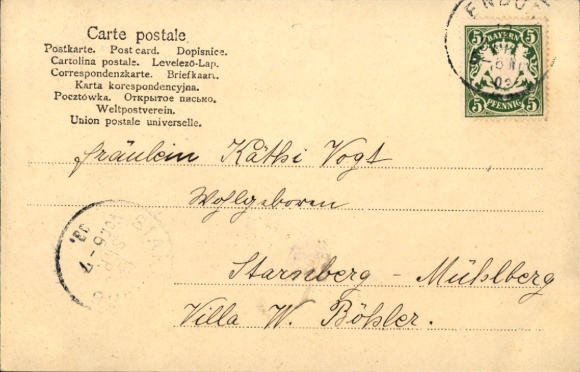 Carte postale
Postkarte. Post card. Dopisnice.
Cartolina postale. Levelező-Lap.
Correspondenzkarte. Briefkaart.
Karta korespondencyjna.
Pocztówka. Открытое письмо.
Weltpostverein.
Union postale universelle.
5 BAYERN 5
5 PFENNIG 5
Fräulein Käthi Vogt
Wohlgeboren
Starnberg - Mühlberg
Villa W. Böhler.
STAR
SEP